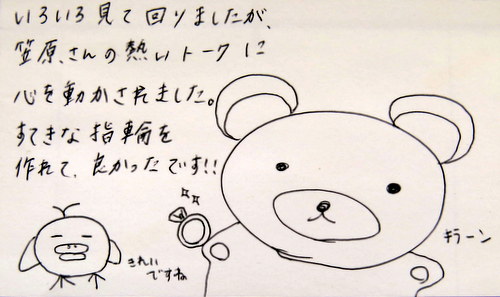 いろいろ見て回りましたが、
笠原さんの熱いトークに
心を動かされました。
すてきな指輪を
作れて、良かったです!!
きれい
ですね
キラーン